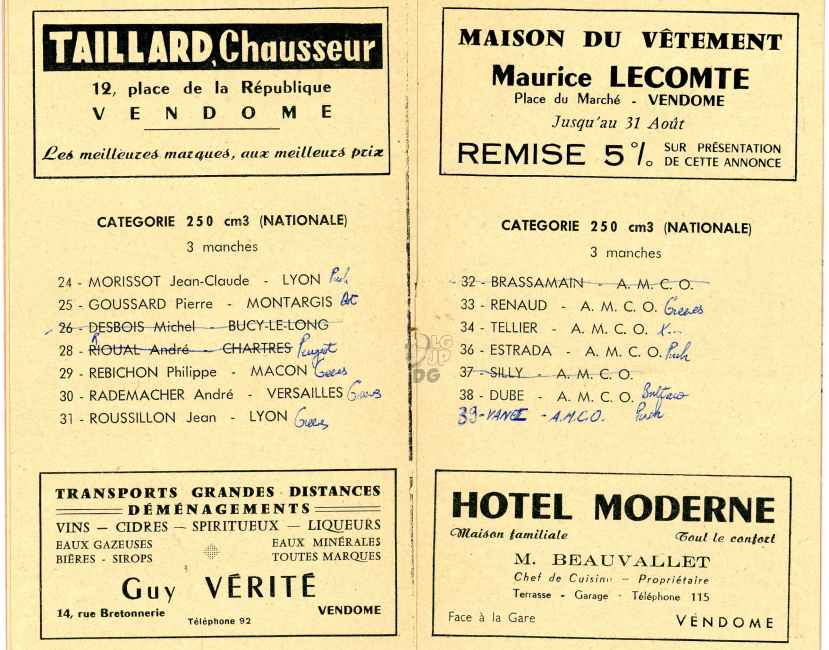 TAILLARD, Chausseur
12, place de la République
VENDOME
Les meilleures marques, aux meilleurs prix
CATEGORIE 250 cm3 (NATIONALE)
3 manches
24 - MORISSOT Jean-Claude - LYON Puch
25 - GOUSSARD Pierre - MONTARGIS
26 - DESBOIS Michel - BUCY-LE-LONG
28 - RIOUAL André - CHARTRES Peugeot
29 - REBICHON Philippe - MACON Greeves
30 - RADEMACHER André - VERSAILLES Greeves
31 - ROUSSILLON Jean - LYON Greeves
TRANSPORTS GRANDES DISTANCES
DÉMÉNAGEMENTS
VINS — CIDRES — SPIRITUEUX — LIQUEURS
EAUX GAZEUSES EAUX MINÉRALES
BIÈRES - SIROPS TOUTES MARQUES
Guy VÉRITÉ
14, rue Bretonnerie VENDOME
Téléphone 92
MAISON DU VÊTEMENT
Maurice LECOMTE
Place du Marché - VENDOME
Jusqu'au 31 Août
REMISE 5% SUR PRÉSENTATION
DE CETTE ANNONCE
CATEGORIE 250 cm3 (NATIONALE)
3 manches
32 - BRASSAMAIN - A. M. C. O.
33 - RENAUD - A. M. C. O. Greeves
34 - TELLIER - A. M. C. O. X...
36 - ESTRADA - A. M. C. O. Puch
37 - SILLY - A. M. C. O.
38 - DUBE - A. M. C. O. Bultaco
39 - - A.M.C.O. Puch
HOTEL MODERNE
Maison familiale Tout le confort
M. BEAUVALLET
Chef de Cuisine — Propriétaire
Terrasse - Garage - Téléphone 115
Face à la Gare VENDOME